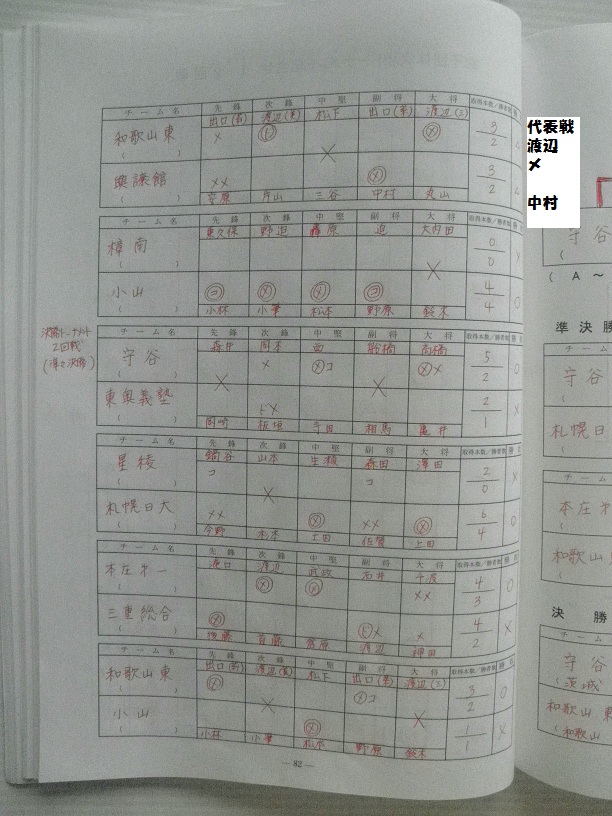 チーム名 先鋒 次鋒 中堅 副将 大将 取得本数/勝者数 勝敗
和歌山東 出口(莉) 渡辺(真) 松下 出口(栞) 渡辺(三) 3/2 △
( )
興譲館 安原 片山 三谷 中村 丸山 3/2 △
( )
代表戦
渡辺
メ
中村
チーム名 先鋒 次鋒 中堅 副将 大将 取得本数/勝者数 勝敗
樟南 東久保 野迫 迫 大内田 0/0 ×
( )
小山 小林 小峯 松本 野原 鈴木 4/4 ○
( )
決勝トーナメント
2回戦
(準々決勝)
チーム名 先鋒 次鋒 中堅 副将 大将 取得本数/勝者数 勝敗
守谷 森井 岡本 西 高橋 5/2 ○
( )
東奥義塾 岡崎 板垣 寺田 相馬 亀井 2/1 ×
( )
チーム名 先鋒 次鋒 中堅 副将 大将 取得本数/勝者数 勝敗
星稜 鍋谷 山本 生瀬 森田 澤田 2/0 ×
( )
札幌日大 今野 木本 土田 佐賀 上田 6/4 ○
( )
チーム名 先鋒 次鋒 中堅 副将 大将 取得本数/勝者数 勝敗
本庄第一 溝口 渡辺 武政 石井 千波 4/3 ○
( )
三重総合 後藤 首藤 菅原 渡辺 神田 4/2 ×
( )
チーム名 先鋒 次鋒 中堅 副将 大将 取得本数/勝者数 勝敗
和歌山東 出口(莉) 渡辺(真) 松下 出口(栞) 渡辺(三) 3/2 ○
( )
小山 小林 小峯 松本 野原 鈴木 1/1 ×
( )
― 82 ―
守谷
( A ~
準決勝
チーム
守谷
札幌日
チーム
本庄
和歌山
決勝
チーム
守谷
(茨城)
和歌山東
(和歌山